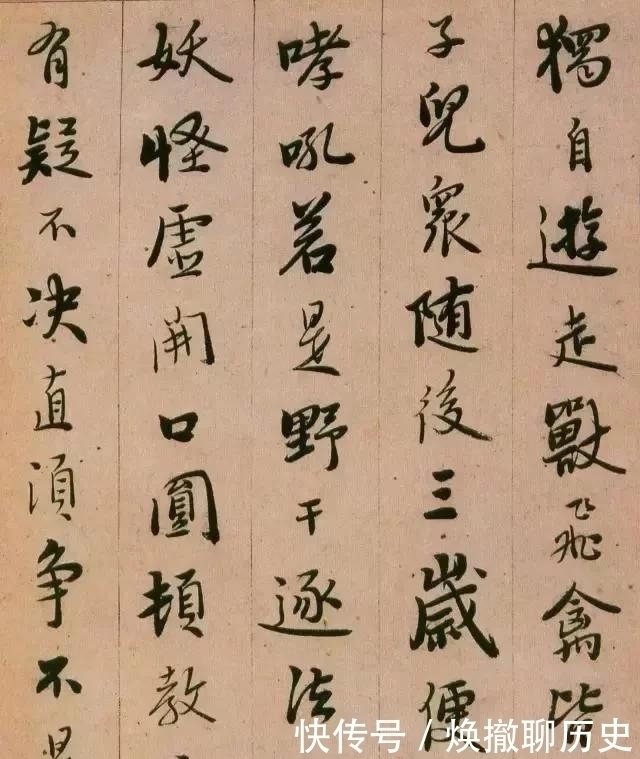 獨自遊走獸飛禽皆
子兒衆随後三歲便
哮吼若是野干逐法
妖怪虛開口圓頓教
有疑不決直須争不是
快传号 / 焕撤聊历史